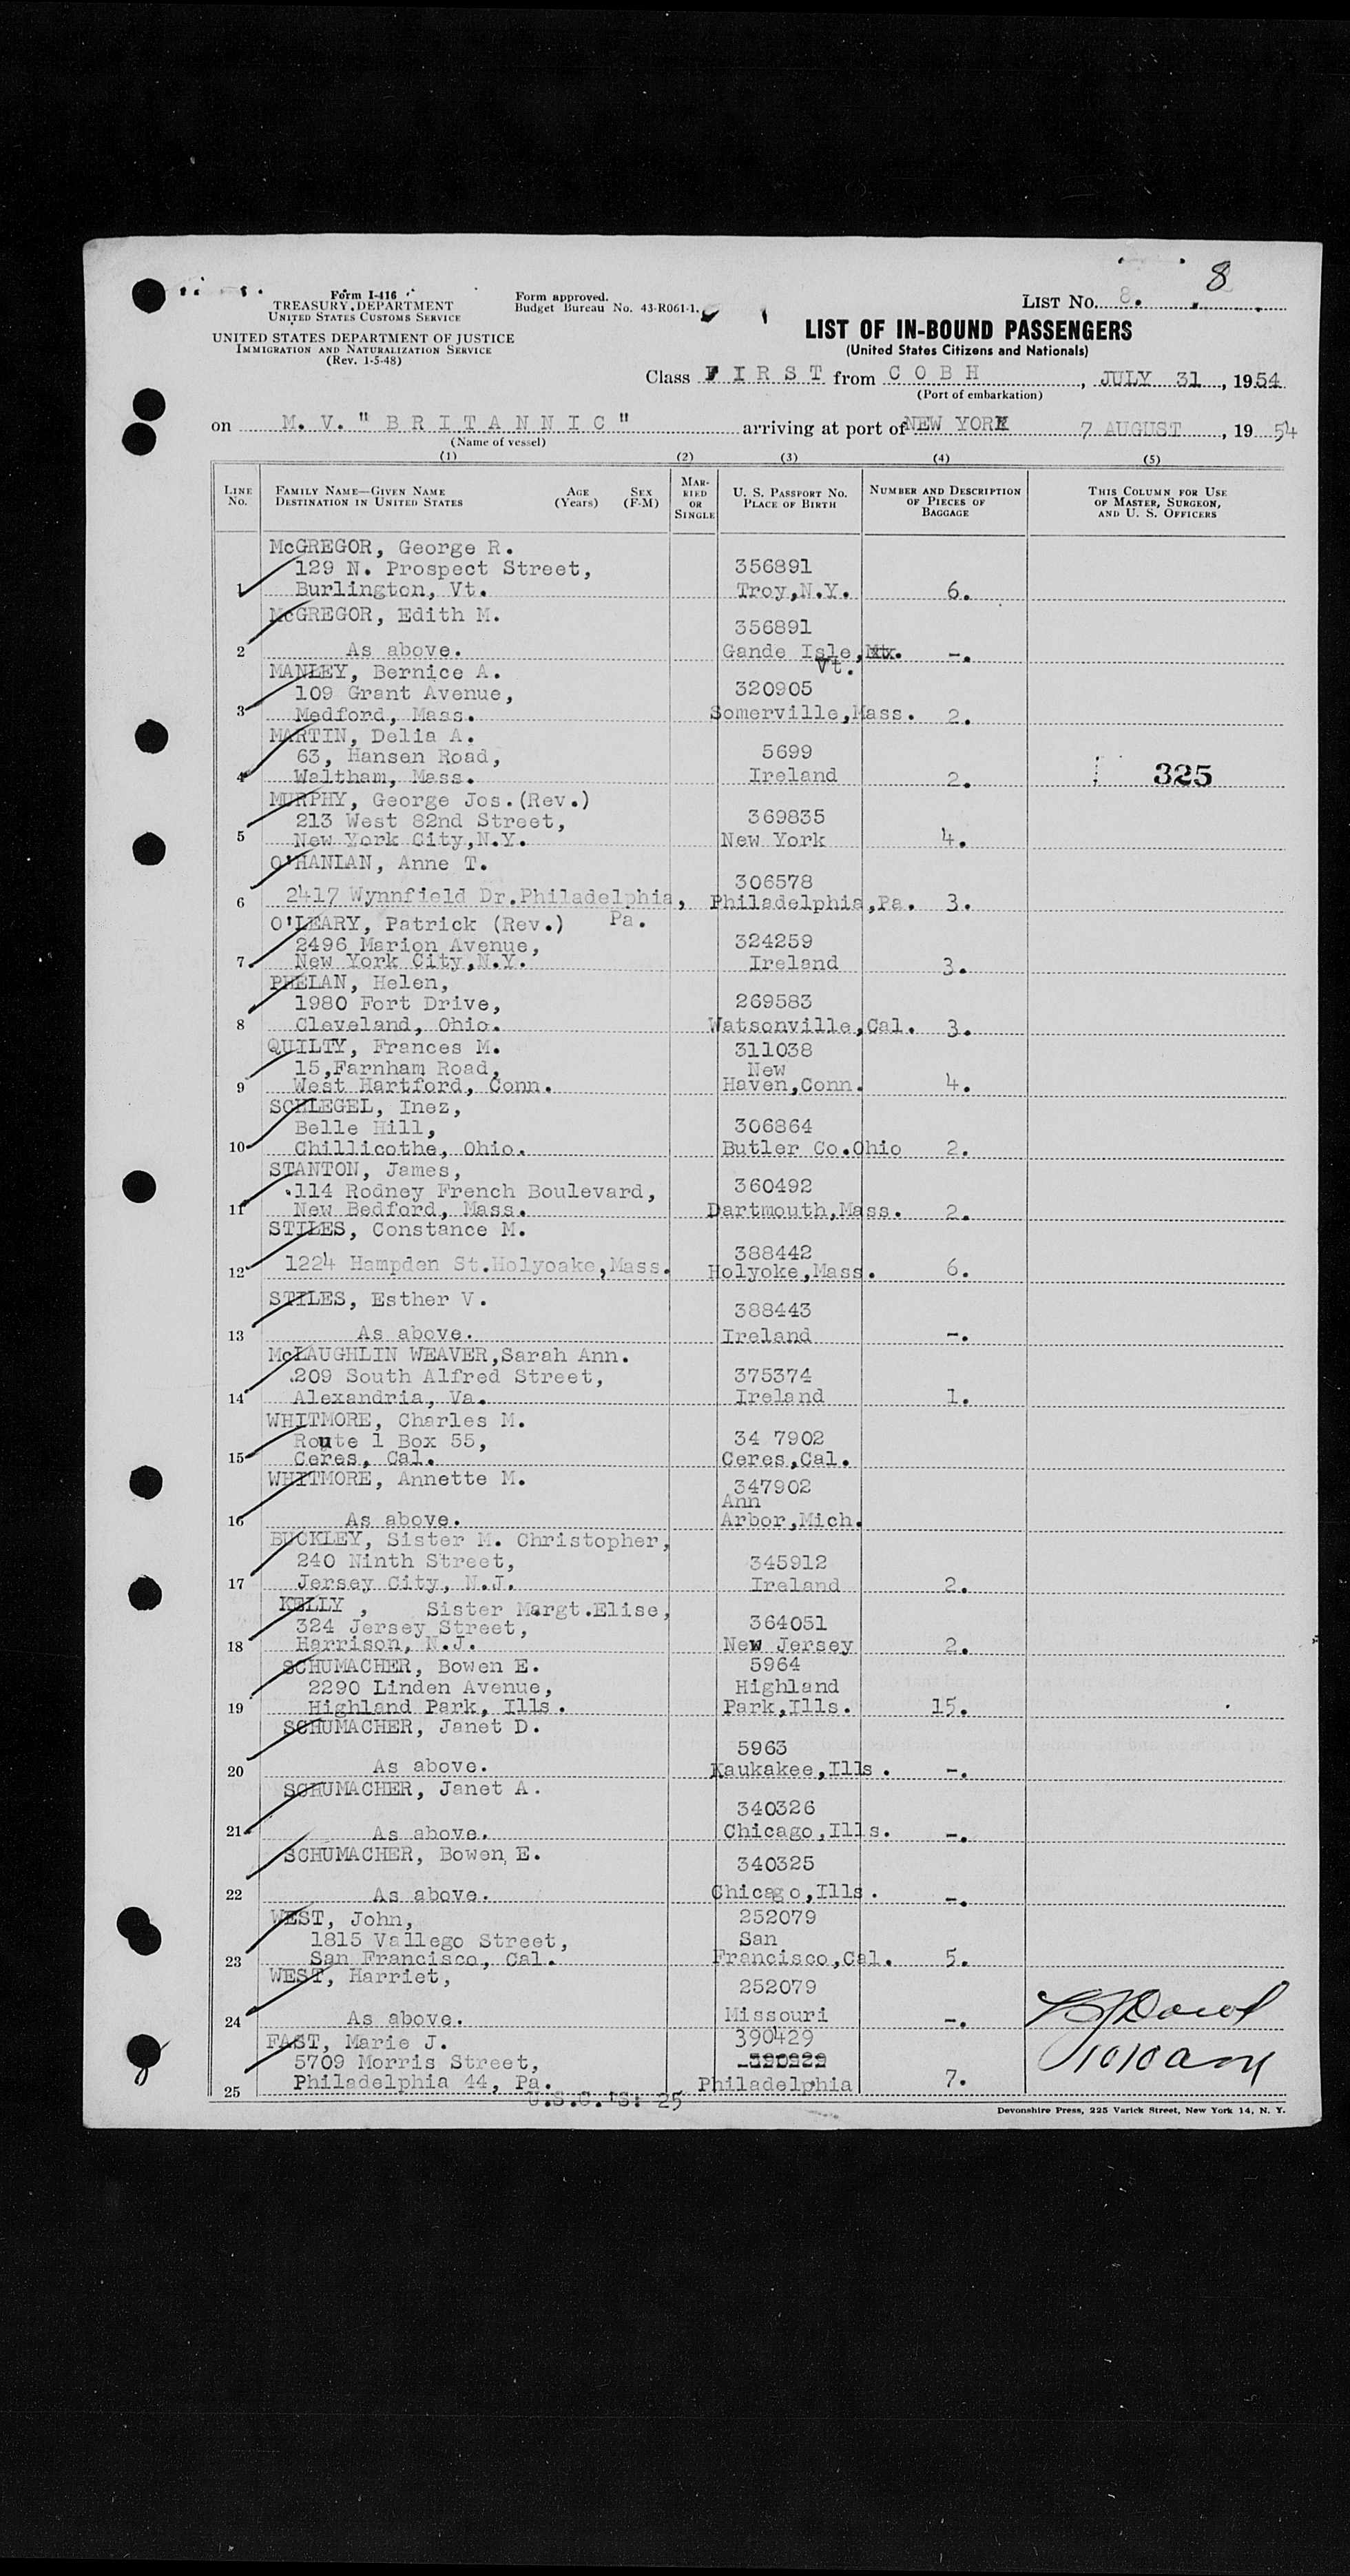 8
Form I-416
TREASURY DEPARTMENT
UNITED STATES CUSTOMS SERVICE
UNITED STATES DEPARTMENT OF JUSTICE
IMMIGRATION AND NATURALIZATION SERVICE
(Rev. 1-5-48)
Form approved.
Budget Bureau No. 43-R061-1.
LIST NO. 8.
LIST OF IN-BOUND PASSENGERS
(United States Citizens and Nationals)
Class FIRST from COBH, JULY 31, 1954
(Port of embarkation)
on M. V. "BRITANNIC" arriving at port of NEW YORK 7 AUGUST, 1954
(Name of vessel)
(1) (2) (3) (4) (5)
LINE NO. FAMILY NAME—GIVEN NAME DESTINATION IN UNITED STATES AGE (Years) SEX (F-M) MARRIED OR SINGLE U. S. PASSPORT NO. PLACE OF BIRTH NUMBER AND DESCRIPTION OF PIECES OF BAGGAGE THIS COLUMN FOR USE OF MASTER, SURGEON, AND U. S. OFFICERS
McGREGOR, George R.
129 N. Prospect Street, 356891
1 Burlington, Vt. Troy,N.Y. 6.
McGREGOR, Edith M.
356891
2 As above. Gande Isle, Vt. -.
MANLEY, Bernice A.
109 Grant Avenue, 320905
3 Medford, Mass. Somerville,Mass. 2.
MARTIN, Delia A.
63, Hansen Road, 5699
4 Waltham, Mass. Ireland 2. 325
MURPHY, George Jos.(Rev.)
213 West 82nd Street, 369835
5 New York City,N.Y. New York 4.
O'HANIAN, Anne T.
306578
6 2417 Wynnfield Dr.Philadelphia, Pa. Philadelphia,Pa. 3.
O'LEARY, Patrick (Rev.)
2496 Marion Avenue, 324259
7 New York City,N.Y. Ireland 3.
PHELAN, Helen,
1980 Fort Drive, 269583
8 Cleveland, Ohio. Watsonville,Cal. 3.
QUILTY, Frances M. 311038
15,Farnham Road, New
9 West Hartford, Conn. Haven,Conn. 4.
SCHLEGEL, Inez,
Belle Hill, 306864
10 Chillicothe, Ohio. Butler Co.Ohio 2.
STANTON, James,
114 Rodney French Boulevard, 360492
11 New Bedford, Mass. Dartmouth,Mass. 2.
STILES, Constance M.
388442
12 1224 Hampden St.Holyoake,Mass. Holyoke,Mass. 6.
STILES, Esther V.
388443
13 As above. Ireland -.
McLAUGHLIN WEAVER,Sarah Ann.
209 South Alfred Street, 375374
14 Alexandria, Va. Ireland 1.
WHITMORE, Charles M.
Route 1 Box 55, 34 7902
15 Ceres, Cal. Ceres,Cal.
WHITMORE, Annette M. 347902
Ann
16 As above. Arbor,Mich.
BUCKLEY, Sister M. Christopher,
240 Ninth Street, 345912
17 Jersey City, N.J. Ireland 2.
KELLY , Sister Margt.Elise,
324 Jersey Street, 364051
18 Harrison, N.J. New Jersey 2.
SCHUMACHER, Bowen E. 5964
2290 Linden Avenue, Highland
19 Highland Park, Ills. Park,Ills. 15.
SCHUMACHER, Janet D.
5963
20 As above. Kaukakee,Ills. -.
SCHUMACHER, Janet A.
340326
21 As above. Chicago,Ills. -.
SCHUMACHER, Bowen E.
340325
22 As above. Chicago,Ills. -.
WEST, John, 252079
1815 Vallego Street, San
23 San Francisco, Cal. Francisco,Cal. 5.
WEST, Harriet,
252079
24 As above. Missouri -.
FAST, Marie J. 390429
5709 Morris Street, 1010 am
25 Philadelphia 44, Pa. Philadelphia 7.
U.S.C.'S: 25
Devonshire Press, 225 Varick Street, New York 14, N. Y.